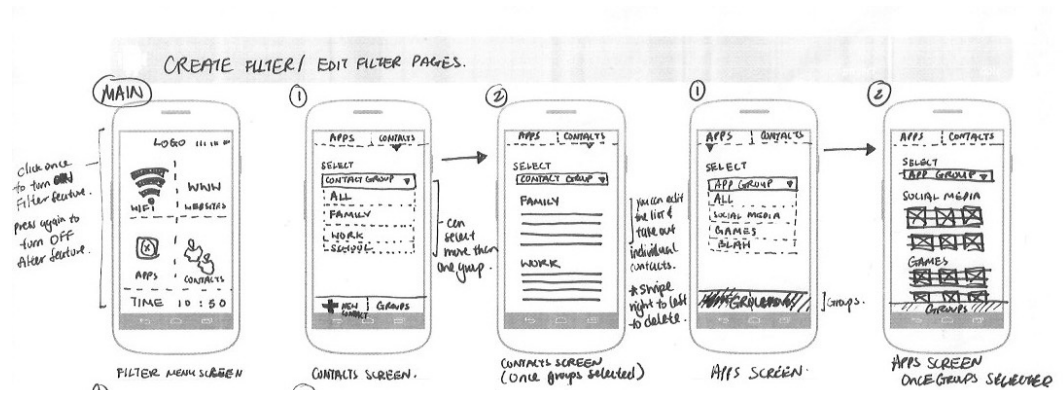 CREATE FILTER/ EDIT FILTER PAGES.
MAIN
click once
to turn
Filter feature.
press again to
turn OFF
filter feature.
LOGO
WIFI
WWW
WEBSITES
APPS
CONTACTS
TIME 10:50
FILTER MENU SCREEN
1
APPS CONTACTS
SELECT
CONTACT GROUP
ALL
FAMILY
WORK
SCHOOL
NEW
CONTACT
GROUPS
can
select
more than
one group.
CONTACTS SCREEN.
2
APPS CONTACTS
SELECT
CONTACT GROUP
FAMILY
WORK
you can edit
the list &
take out
individual
contacts.
* Swipe
right to left
to delete.
CONTACTS SCREEN
(Once groups selected)
1
APPS CONTACTS
SELECT
APP GROUP
ALL
SOCIAL MEDIA
GAMES
BLAH
Groups.
APPS SCREEN.
2
APPS CONTACTS
SELECT
APP GROUP
SOCIAL MEDIA
GAMES
GROUPS
APPS SCREEN
ONCE GROUPS SELECTED